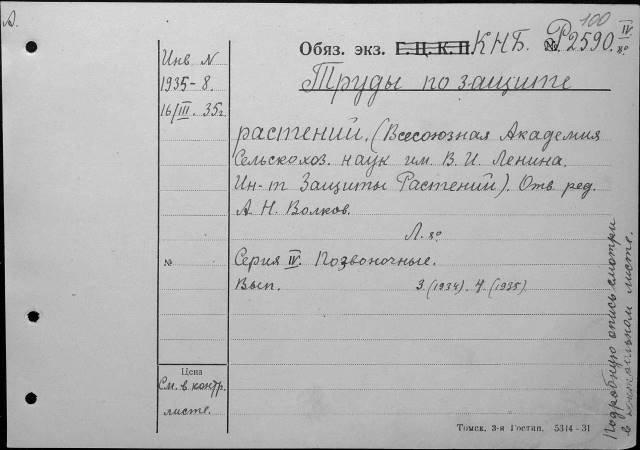 А.
Обяз. экз. Г.Ц.К.П. КНБ. № Р2590. IV
100
8°
Инв N
1935-8.
16/III. 35г.
Труды по защите
растений. (Всесоюзная Академия
Сельскохоз. наук им. В. И. Ленина.
Ин-т Защиты Растений). Отв. ред.
А. Н. Волков.
Л. 8°
№
Серия IV. Позвоночные.
Вып. 3. (1934). 4. (1935).
Цена
См. в контр.
листе.
Томск, 3-я Гостип. 5314-31
Подробную опись смотри
в контрольном листе.